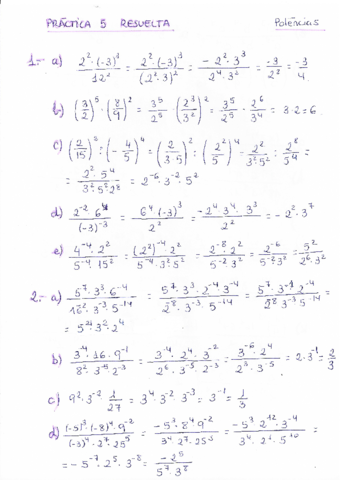 PRÁCTICA 5 RESUELTA Potencias
1.- a) (2² · (-3)³)/(12²) = (2² · (-3)³)/((2² · 3)²) = (-2² · 3³)/(2⁴ · 3²) = (-3)/(2²) = (-3)/4
b) (3/2)⁵ · (8/9)² = 3⁵/2⁵ · (2³/3²)² = 3⁵/2⁵ · 2⁶/3⁴ = 3 · 2 = 6
c) (2/15)² : (-4/5)⁴ = (2/(3·5))² : (2²/5)⁴ = 2²/(3² · 5²) : 2⁸/5⁴ =
= (2² · 5⁴)/(3² 5² 2⁸) = 2⁻⁶ · 3⁻² · 5²
d) (2⁻² · 6⁴)/((-3)⁻³) = (6⁴ · (-3)³)/(2²) = (-2⁴ 3⁴ · 3³)/(2²) = -2² · 3⁷
e) (4⁻⁴ · 2²)/(5⁻⁴ · 15²) = ((2²)⁻⁴ · 2²)/(5⁻⁴ · 3² 5²) = (2⁻⁸ · 2²)/(5⁻² · 3²) = (2⁻⁶)/(5⁻² 3²) = (5²)/(2⁶ · 3²)
2.- a) (5⁷ · 3³ 6⁻⁴)/(16² · 3⁻³ · 5⁻¹⁴) = (5⁷ · 3³ · 2⁻⁴ 3⁻⁴)/(2⁸ · 3⁻³ · 5⁻¹⁴) = (5⁷ · 3⁻¹ 2⁻⁴)/(2⁸ 3⁻³ 5⁻¹⁴) =
= 5²¹ · 3² · 2⁴
b) (3⁻⁴ · 16 · 9⁻¹)/(8² · 3⁻⁵ 2⁻³) = (3⁻⁴ · 2⁴ · 3⁻²)/(2⁶ · 3⁻⁵ · 2⁻³) = (3⁻⁶ · 2⁴)/(2³ · 3⁻⁵) = 2 · 3⁻¹ = 2/3
c) 9² · 3⁻² · 1/27 = 3⁴ · 3⁻² · 3⁻³ = 3⁻¹ = 1/3
d) ((-5)³ · (-8)⁴ · 9⁻²)/((-3)⁴ · 2⁷ 25⁵) = (-5³ · 8⁴ 9⁻²)/(3⁴ · 2⁷ · 25⁵) = (-5³ 2¹² · 3⁻⁴)/(3⁴ · 2⁷ · 5¹⁰) =
= -5⁻⁷ · 2⁵ · 3⁻⁸ = (-2⁵)/(5⁷ 3⁸)